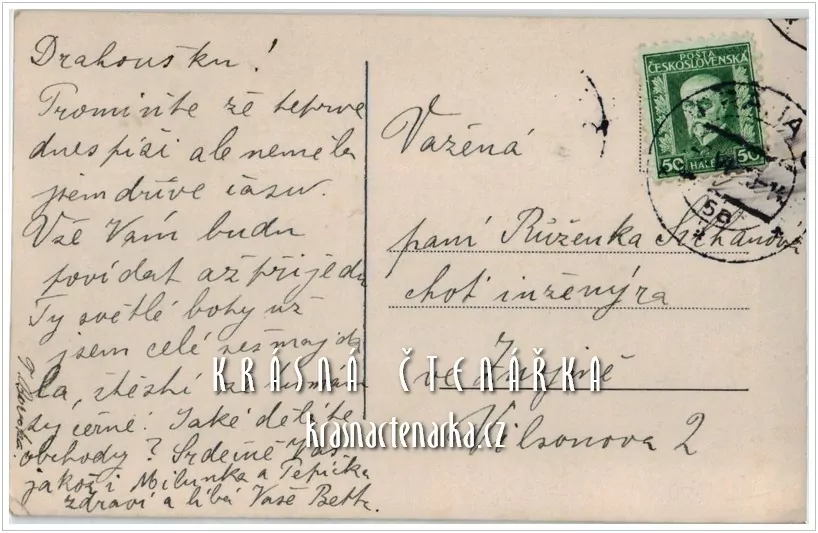 Drahoušku!
Promiňte že teprve
dnes píši ale neměla
jsem dříve času.
Vše Vám budu
povídat až přijedu
Ty světlé boty už
jsem celé sešmajda
la, štěstí že mám
ty černé. Jaké děláte
obchody? Srdečně Vás
jakož i Milunka a Pepíčka
zdraví a líbá Vaše Betk.
Vážená
paní Růženka
choť inženýra
ve Znojmě
Vilsonova 2
POŠTA
ČESKOSLOVENSKÁ
50 HALÉŘŮ 50
PRAHA
5B
KRÁSNÁ ČTENÁŘKA
krasnactenarka.cz